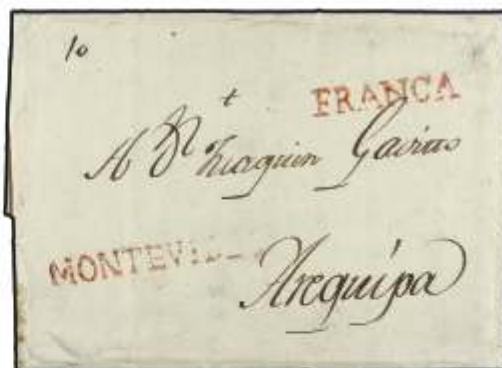 10
FRANCA
A Dn Juaquin
MONTEVID
Arequipa